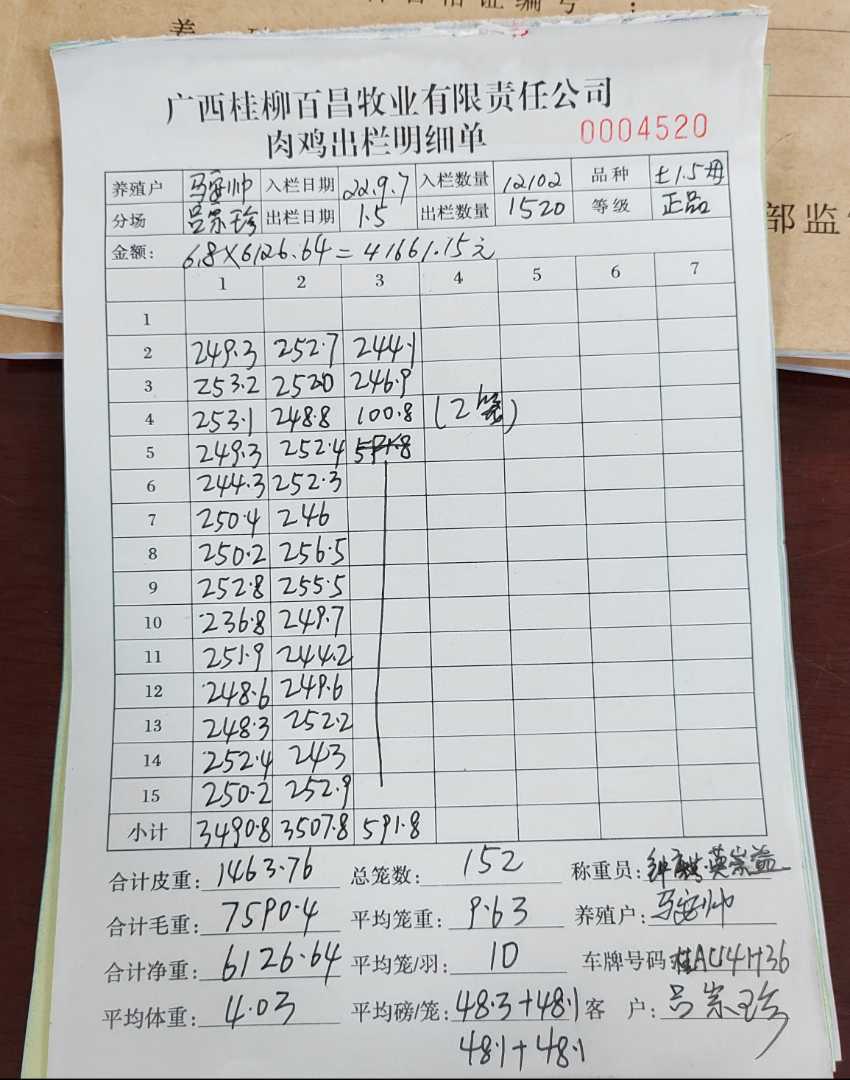 证编号：
养
广西桂柳百昌牧业有限责任公司
肉鸡出栏明细单 0004520
部监
养殖户 马安帅 入栏日期 22.9.7 入栏数量 12102 品种 土1.5母
分场 吕宗珍 出栏日期 1.5 出栏数量 1520 等级 正品
金额: 6.8×6126.64=41661.15元
1 2 3 4 5 6 7
1
2 249.3 252.7 244.1
3 253.2 252.0 246.9
4 253.1 248.8 100.8 (2笼)
5 249.3 252.4 591.8
6 244.3 252.3
7 250.4 246
8 250.2 256.5
9 252.8 255.5
10 236.8 249.7
11 251.9 244.2
12 248.6 249.6
13 248.3 252.2
14 252.4 243
15 250.2 252.9
小计 3490.8 3507.8 591.8
合计皮重: 1463.76 总笼数: 152 称重员:
合计毛重: 7590.4 平均笼重: 9.63 养殖户: 马安帅
合计净重: 6126.64 平均笼/羽: 10 车牌号码 桂AU41H36
平均体重: 4.03 平均磅/笼: 48.3+48.1 客户: 吕宗珍
48.1+48.1